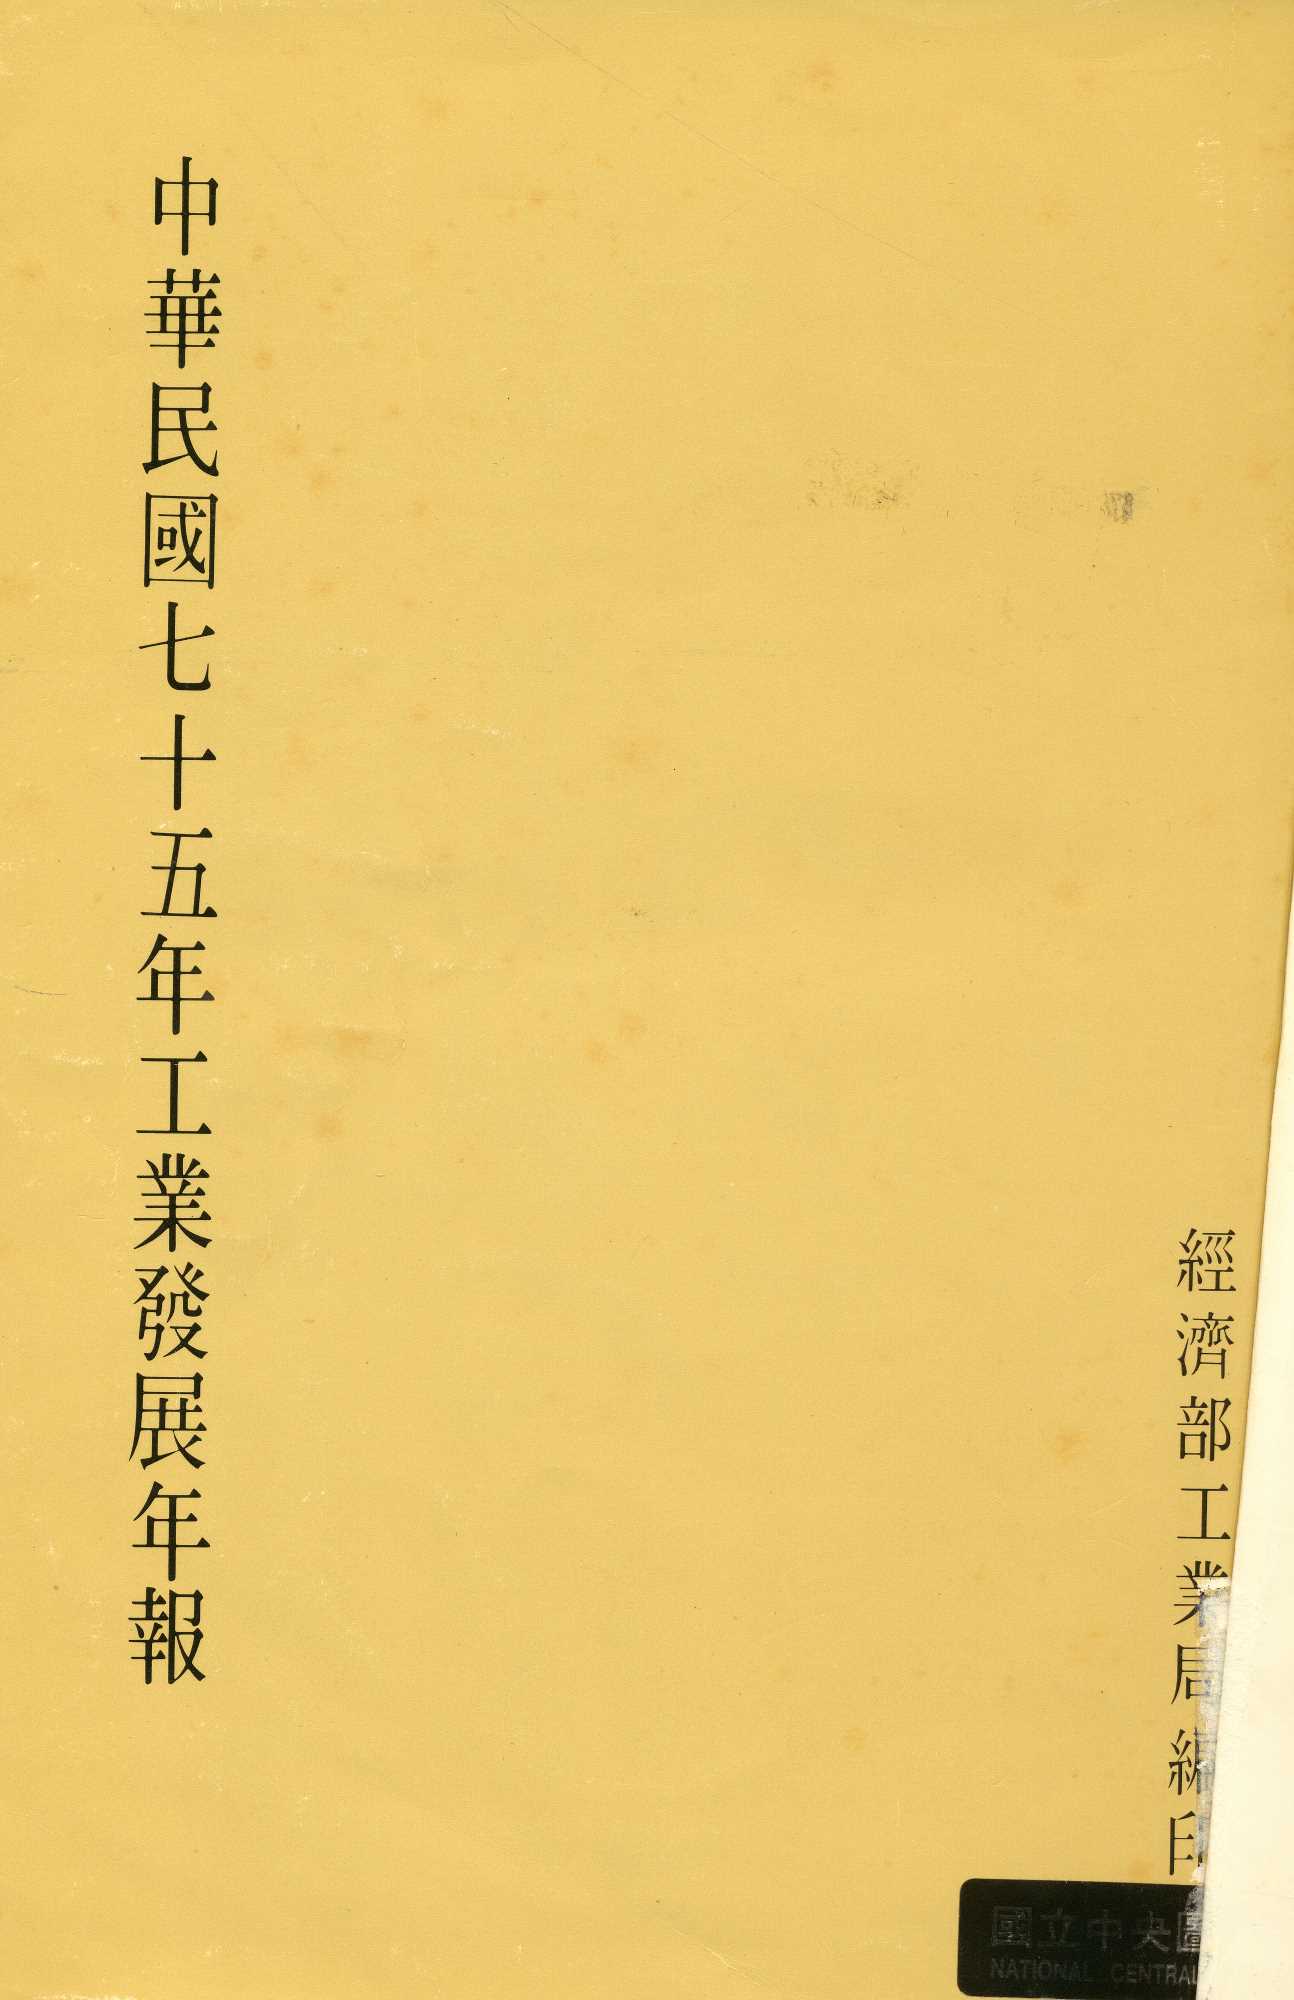 中華民國七十五年工業發展年報
經濟部工業局編印
國立中央圖
NATIONAL CENTRAL